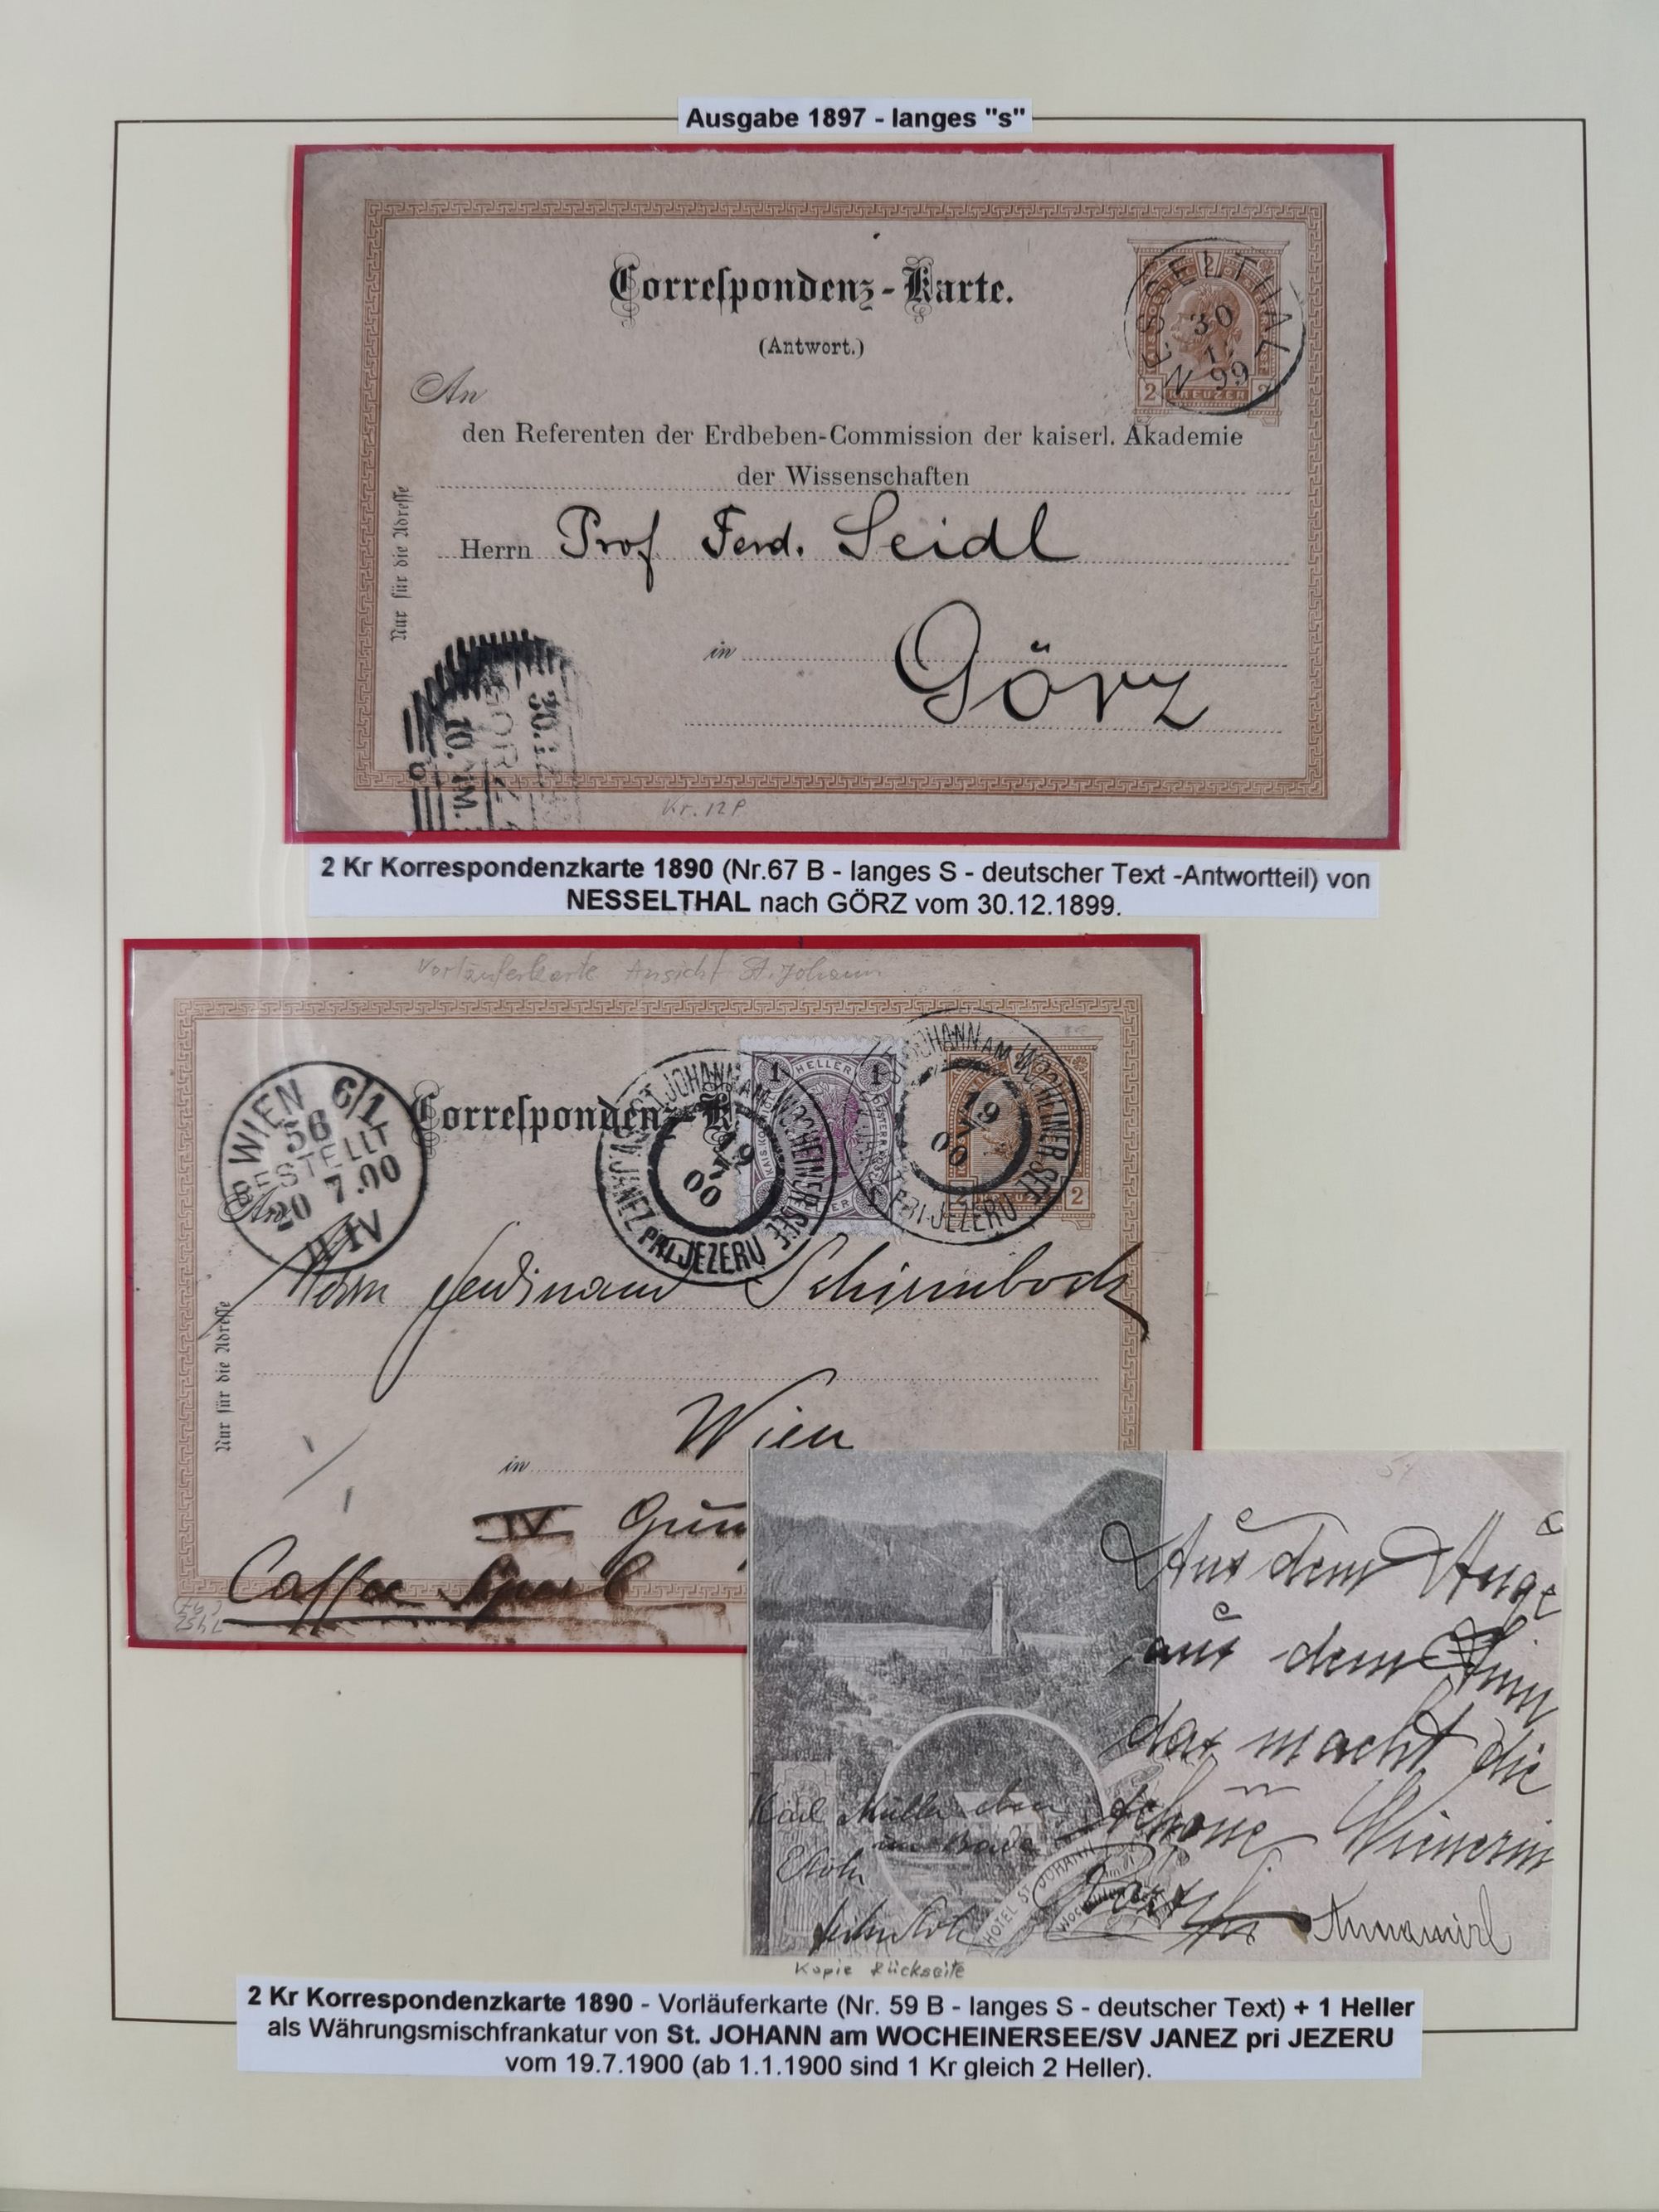 Ausgabe 1897 - langes "s"
Correſpondenz-Karte.
(Antwort.)
NESSELTHAL
30
99
2 KREUZER 2
An
den Referenten der Erdbeben-Commission der kaiserl. Akademie
der Wissenschaften
Herrn Prof Ferd. Seidl
in Görz
Nur für die Adreſſe
GÖRZ
Kr. 12 P
2 Kr Korrespondenzkarte 1890 (Nr.67 B - langes S - deutscher Text -Antwortteil) von
NESSELTHAL nach GÖRZ vom 30.12.1899.
Vorläuferkarte Ansicht St. Johann
Correſpondenz-K
WIEN 6/1
56
BESTELLT
20 7.00
IV
ST. JOHANN AM WOCHEINER SEE
SV. JANEZ PRI JEZERU
19
7
00
1 HELLER 1
JOHANN AM WOCHEINER SEE
PRI JEZERU
19
7
00
KREUZER 2
An
Herrn Ferdinand Schirnbock
Nur für die Adreſſe
in Wien
IV
Caffee
Aus dem Auge
aus dem Sinn
das macht die
schöne Wienerin
Karl Müller
HOTEL ST JOHANN
am
WOCHEINER SEE
Kopie Rückseite
2 Kr Korrespondenzkarte 1890 - Vorläuferkarte (Nr. 59 B - langes S - deutscher Text) + 1 Heller
als Währungsmischfrankatur von St. JOHANN am WOCHEINERSEE/SV JANEZ pri JEZERU
vom 19.7.1900 (ab 1.1.1900 sind 1 Kr gleich 2 Heller).